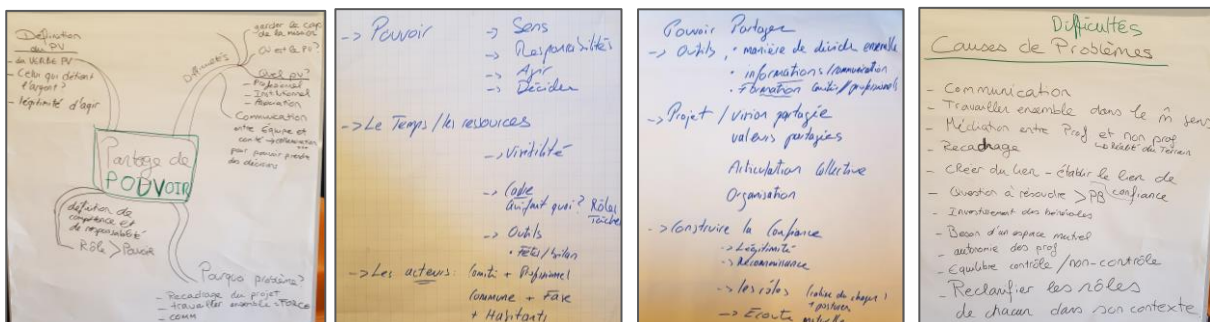 Définition
du PV
un VERBE PV
- Celui qui détient
l'argent?
- légitimité d'agir
Difficultés
garder le cap
de la mission
Où est le PV?
Quel PV?
- Professionnel
- Institutionnel
- Association
Communication
entre équipe et
comité → 
pour pouvoir prendre
des décisions
Partage de
POUVOIR
définition de
compétence et
de responsabilité
- Rôle > Pouvoir
Pourquoi problème?
- Recadrage du projet
- travailler ensemble = FORCE
- COMM
-> Pouvoir
-> Sens
-> Responsabilités
-> Agir
-> Décider
-> Le Temps / les ressources
-> Visibilité
-> Cadre
Qui fait quoi? Rôles
Tâches
-> Outils
• Fêtes / bilan
-> Les acteurs: Comité + Professionnel
Commune + Fase
+ Habitants
Pouvoir Partager
-> Outils : • manière de décider ensemble
• informations / communication
• Formation comités / professionnels
-> Projet / vision partagée
valeurs partagées
Articulation collective
Organisation
-> Construire la Confiance
-> Légitimité
-> Reconnaissance
-> les rôles
+ postures
-> Ecoute mutuelle
Difficultés
Causes de Problèmes
- Communication
- Travailler ensemble dans le m̂ sens
- Médiation entre Prof et non prof
↳ Réalité du Terrain
- Recadrage
- Créer du lien - établir le lien de
confiance
- Question à résoudre > PB
- Investissement des bénévoles
- Besoin d'un espace mutuel
autonomie des prof
- Equilibre contrôle / non-contrôle
- Reclarifier les rôles
de chacun dans son contexte